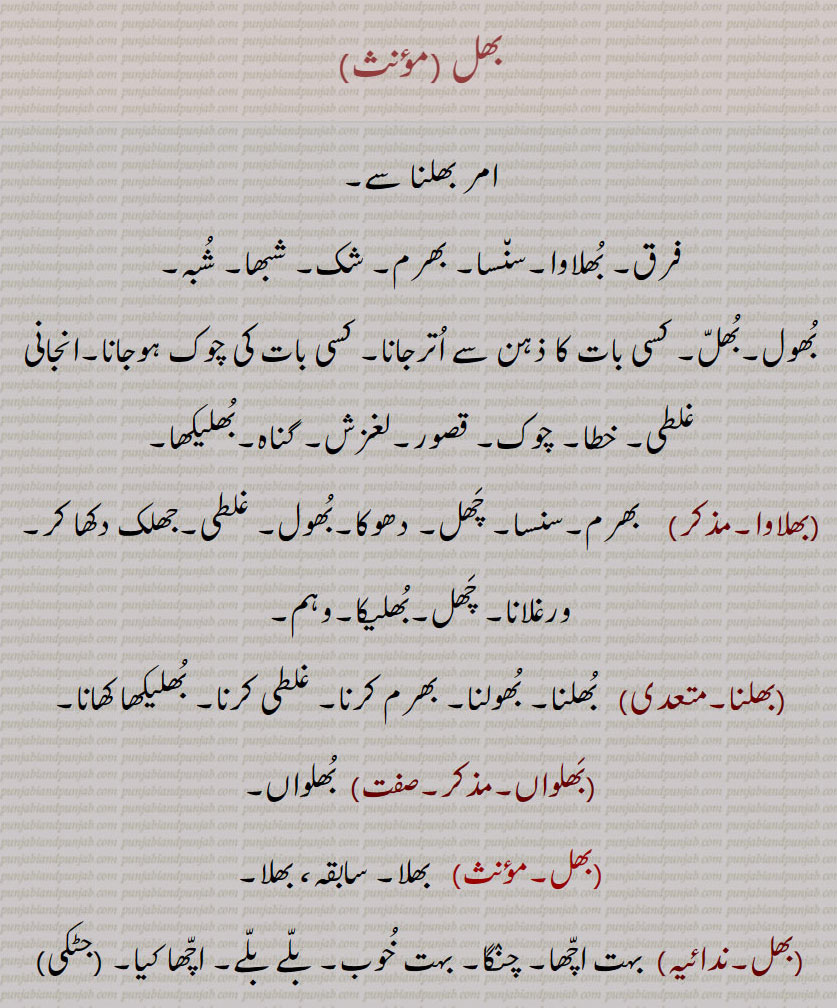 بھل (مؤنث)
امر بھلنا سے۔
فرق۔ بُھلاوا۔ سنّسا۔ بھرم۔ شک۔ شبھا۔ شُبہ۔
بُھول۔ بُھلّ۔ کسی بات کا ذہن سے اُترجانا۔ کسی بات کی چوک ہوجانا۔ انجانی
غلطی۔ خطا۔ چوک۔ قصور۔ لغزش۔ گناہ۔ بُھلیکھا۔
(بھلاوا۔ مذکر) بھرم۔ سنسا۔ چَھل۔ دھوکا۔ بُھول۔ غلطی۔ جھلک دکھا کر۔
ورغلانا۔ چَھل۔ بُھلیکا۔ وہم۔
(بھلنا۔ متعدی) بُھلنا۔ بُھولنا۔ بھرم کرنا۔ غلطی کرنا۔ بُھلیکھا کھانا۔
(بَھلواں۔ مذکر۔ صفت) بُھلواں۔
(بھل۔ مؤنث) بھلا۔ سابقہ، بھلا۔
(بھل۔ ندائیہ) بہت اچّھا۔ چنگا۔ بہت خُوب۔ بلّے بلّے۔ اچّھا کیا۔ (جٹکی)
punjabiandpunjab com